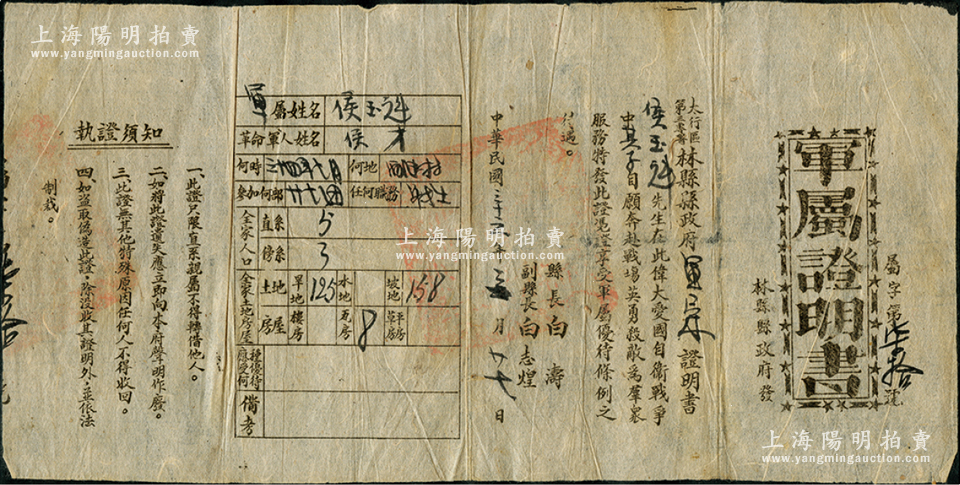 上海陽明拍賣
www.yangmingauction.com
上海陽明拍賣
www.yangmingauction.com
上海陽明拍賣
www.yangmingauction.com
屬字第 拾號
軍屬證明書
林縣縣政府發
太行區
第五專署
林縣縣政府軍屬證明書
侯玉魁先生在此偉大愛國自衛戰爭
中其子自願奔赴戰場英勇殺敵為羣衆
服務特發此證憑證享受軍屬優待條例之
待遇。
縣長白濤
副縣長白志煌
中華民國三十 年 月廿 日
軍屬姓名 侯玉魁
革命軍人姓名 侯才
何時 三十四年 月 何地
參加何部 團 任何職務 戰士
全家人口 直系 5
傍系 3
全家土地房屋 土地 旱地 125 水地 坡地 158
房屋 樓房 瓦房 8 平房 草房
應受何種優待
備考
執證須知
一、此證只限直系親屬不得轉借他人。
二、如將此證遺失應立即向本府聲明作廢。
三、此證無其他特殊原因任何人不得收回。
四、如盜取偽造此證，除沒收其證明外，並依法
制裁。